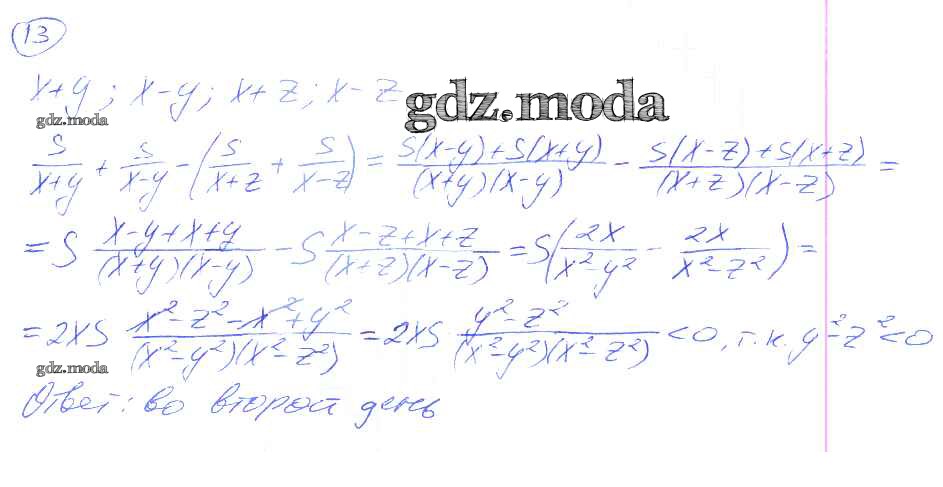 13
x+y; x-y; x+z; x-z
gdz.moda
gdz.moda
S/(x+y) + S/(x-y) - (S/(x+z) + S/(x-z)) = (S(x-y)+S(x+y))/((x+y)(x-y)) - (S(x-z)+S(x+z))/((x+z)(x-z)) =
= S (x-y+x+y)/((x+y)(x-y)) - S (x-z+x+z)/((x+z)(x-z)) = S(2x/(x²-y²) - 2x/(x²-z²)) =
= 2xS (x²-z²-x²+y²)/((x²-y²)(x²-z²)) = 2xS (y²-z²)/((x²-y²)(x²-z²)) < 0, т.к. y²-z²<0
gdz.moda
Ответ: во второй день